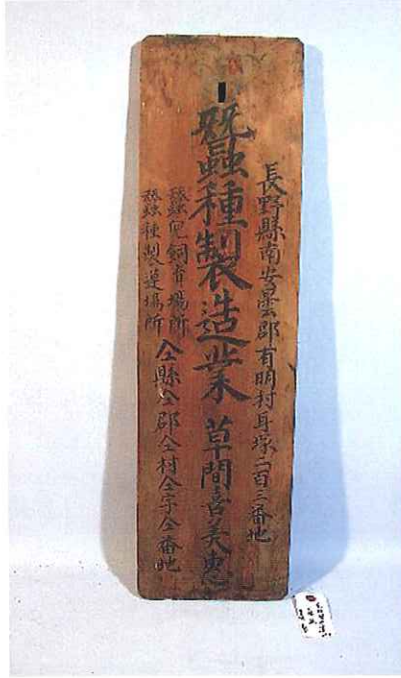 長野縣南安曇郡有明村耳塚二百三番地
蠶種製造業 草間喜美恵
蠶兒飼育場所
蠶種製造場所
仝縣仝郡仝村仝字仝番地